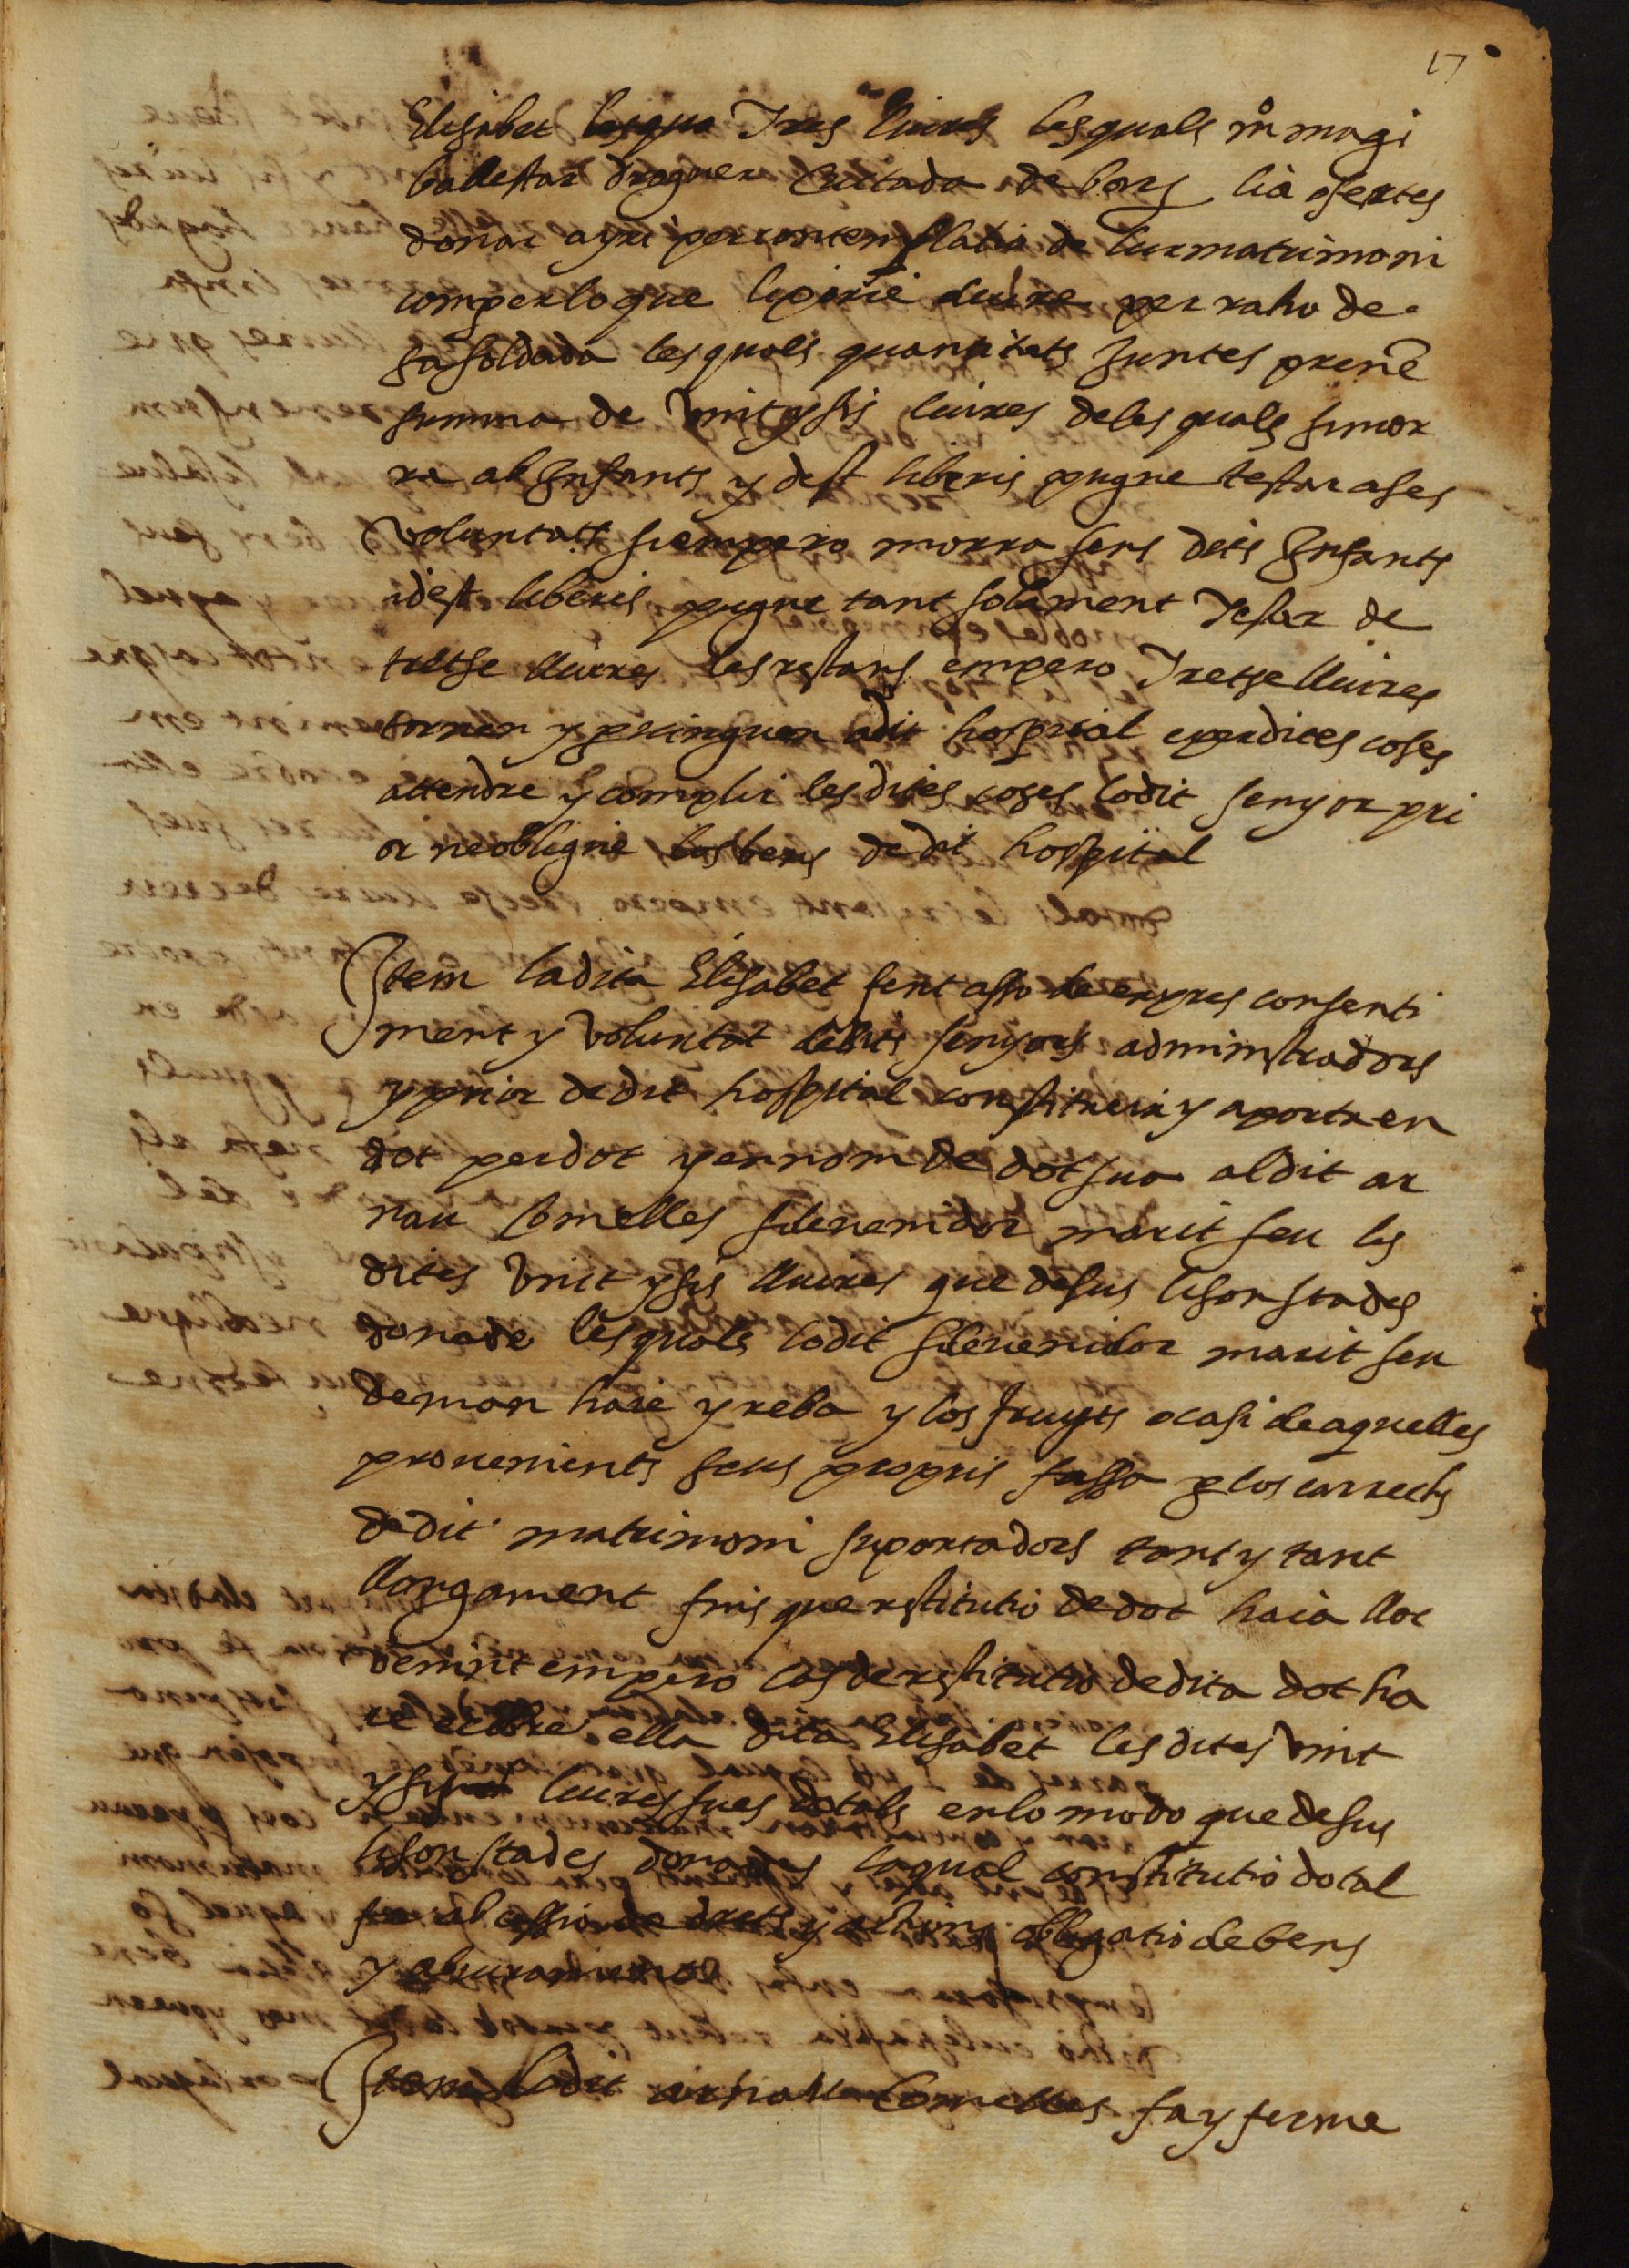 17
Elisabet lesqua Tres liures lesquals mº magi
ballestar droguer ciutada de barª lia ofertes
donar axi per contemplatio de lur matrimoni
com per lo que li porie deure per raho de
sa soldada les quals quantitats Juntes prenē
summa de vint y sis liures deles quals si mor
ra ab Infants y dest liberis pugue testar a ses
voluntats si empero morra sens dets Infants
idest liberis pugue tant solament Testar de
tretse lliures les restans empero Tretse lliures
tornen y pervinguen adit hospital e per dites coses
attendre y complir les dites coses lodit senyor pri
or ne obligue los bens de dit hospital
Item la dita Elisabet fent asso de expres consenti
ment y voluntat dels dits senyors administradors
y prior de dit hospital constitueix y aporta en
dot per dot y en nom de dot sua al dit ar
nau Comelles sdevenidor marit seu les
dites vint y sis lliures que desus li son stades
donade les quals lo dit sdevenidor marit seu
deman haie y reba y los fruyts e casi de aquelles
provenients seus propris fassa p los carrechs
de dit matrimoni suportadors tant y tant
llargament fins que restitutio de dot haia lloc
venint empero cas de restitutio de dita dot ha
ie e cobre ella dita Elisabet les dites vint
y sis liures sues dotals en lo modo que desus
li son stades donades la qual constitutio dotal
fa ab cessio de drets y actions obligatio de bens
y ab jurament
Item lo dit arnau Comelles fa y ferme